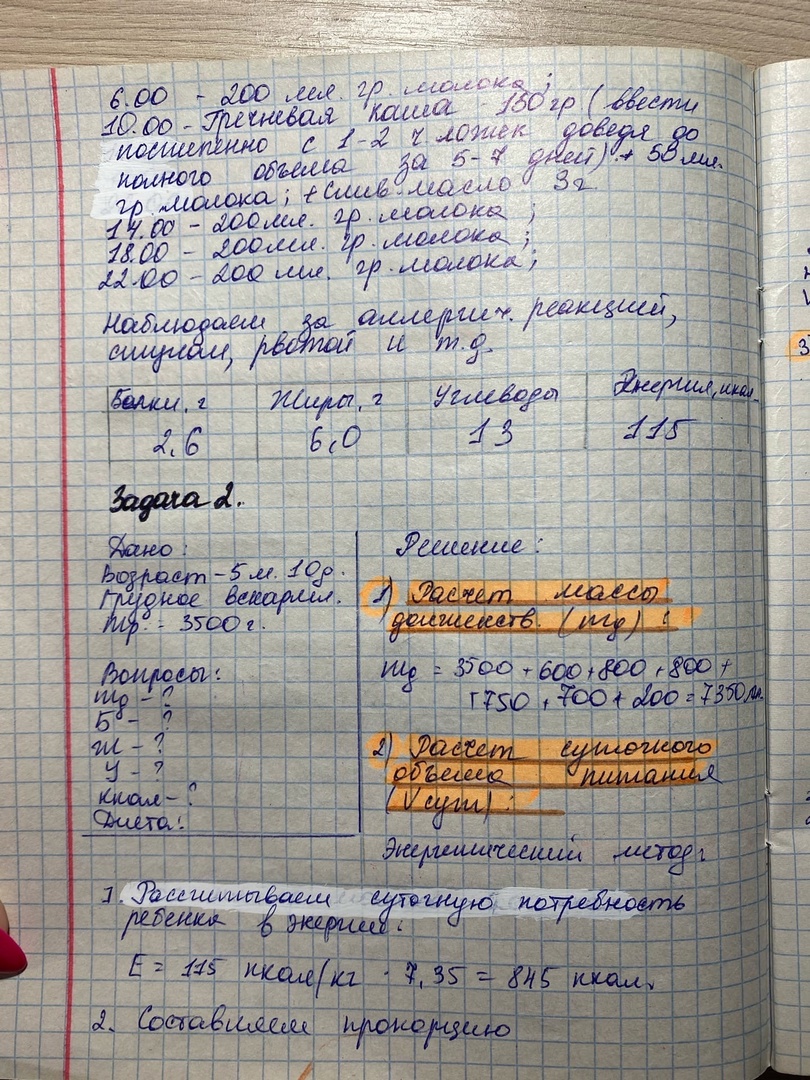 6.00 - 200 мл. гр. молока;
10.00 - Гречневая каша - 150 гр (ввести
постепенно с 1-2 ч ложек доведя до
полного объема за 5-7 дней) + 50 мл.
гр. молока; + слив. масло 3 г
14.00 - 200 мл. гр. молока;
18.00 - 200 мл. гр. молока;
22.00 - 200 мл. гр. молока;
Наблюдаем за аллергич. реакцией,
стулом, рвотой и т.д.
Белки, г Жиры, г Углеводы Энергия, ккал
2,6 6,0 13 115
Задача 2.
Дано:
Возраст - 5 м. 10 д.
Грудное вскармл.
mр. = 3500 г.
Вопросы:
mд - ?
Б - ?
Ж - ?
У - ?
ккал - ?
Диета:
Решение:
1) Расчет массы
долженств. (mд):
mд = 3500 + 600 + 800 + 800 +
+ 750 + 700 + 200 = 7350
2) Расчет суточного
объема питания
(Vсут):
Энергетический метод:
1. Рассчитываем суточную потребность
ребенка в энергии:
E = 115 ккал/кг · 7,35 = 845 ккал.
2. Составляем пропорцию